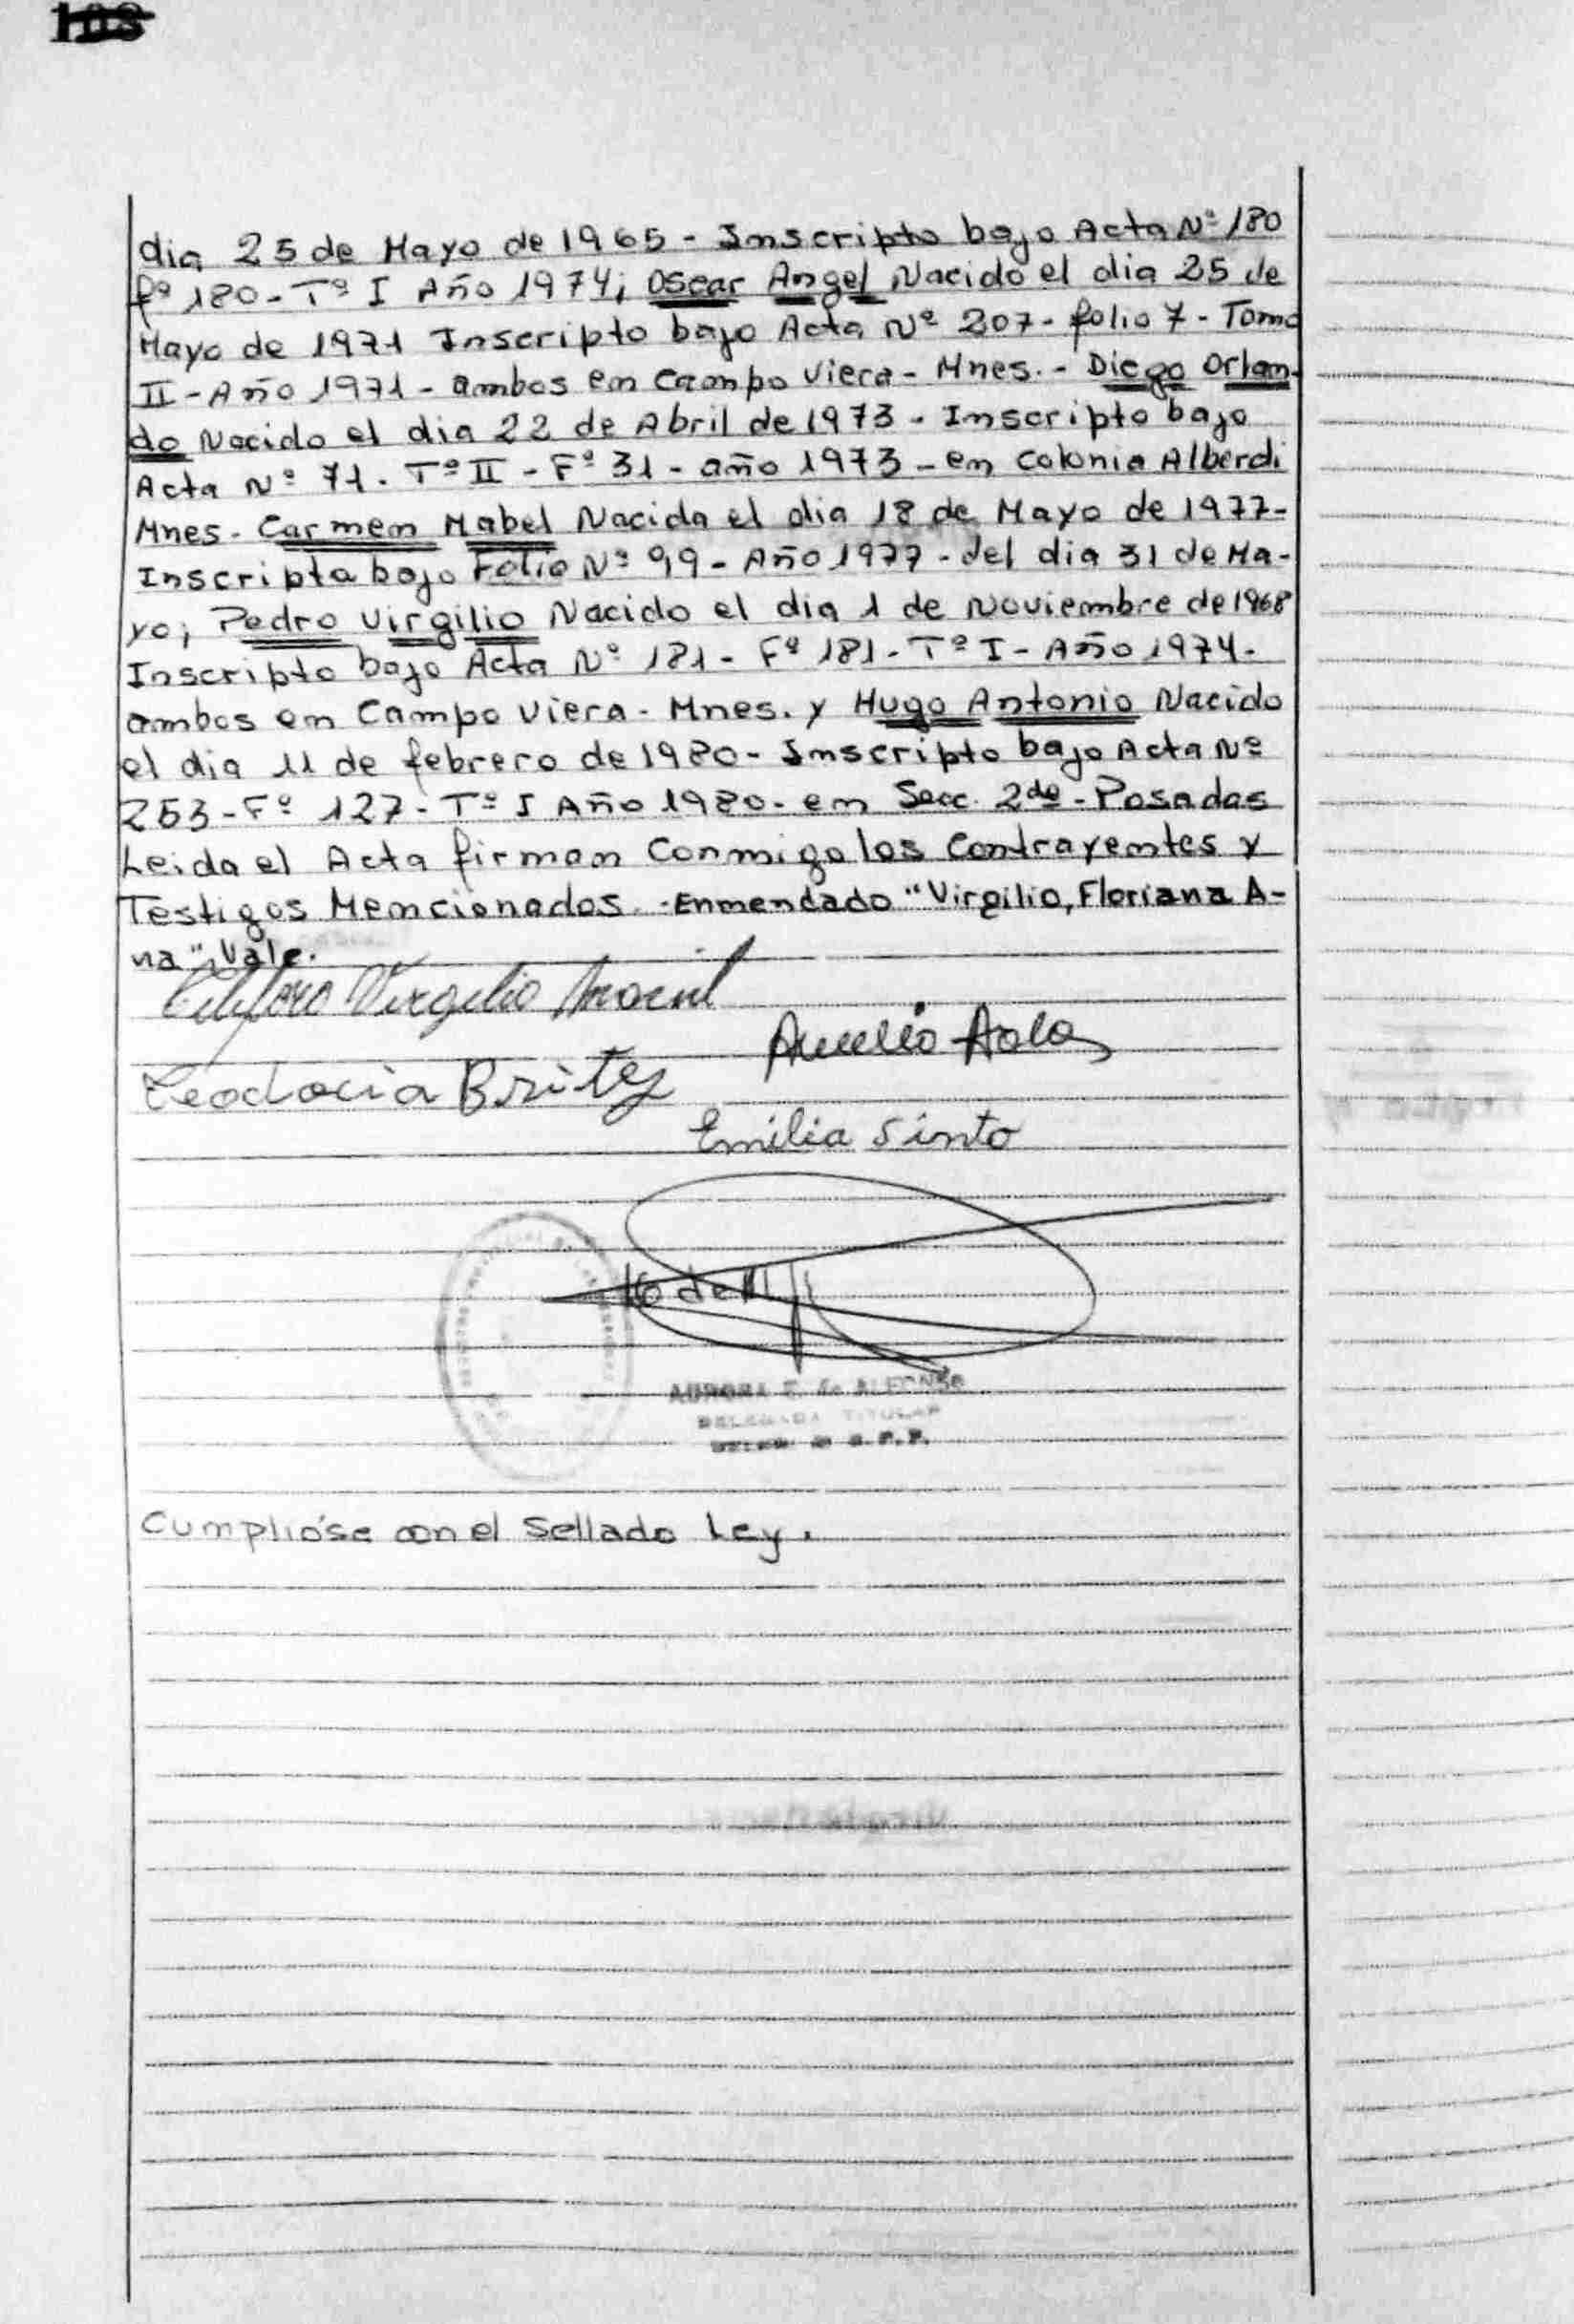 dia 25 de Mayo de 1965 - Inscripto bajo Acta Nº 180
fº 180 - Tº I Año 1974; Oscar Angel Nacido el dia 25 de
Mayo de 1971 Inscripto bajo Acta Nº 207 - folio 7 - Tomo
II - Año 1971 - ambos en Campo Viera - Mnes. - Diego Orlan-
do Nacido el dia 22 de Abril de 1973 - Inscripto bajo
Acta Nº 71 - Tº II - Fº 31 - año 1973 - en Colonia Alberdi
Mnes - Carmen Mabel Nacida el dia 18 de Mayo de 1977 -
Inscripta bajo Folio Nº 99 - Año 1977 - del dia 31 de Ma-
yo; Pedro Virgilio Nacido el dia 1 de Noviembre de 1968
Inscripto bajo Acta Nº 181 - Fº 181 - Tº I - Año 1974 -
ambos en Campo Viera - Mnes. y Hugo Antonio Nacido
el dia 11 de febrero de 1980 - Inscripto bajo Acta Nº
253 - Fº 127 - Tº I Año 1980 - en Secc. 2da - Posadas
Leida el Acta firman Conmigo los Contrayentes y
Testigos Mencionados. - Enmendado "Virgilio, Floriana A-
na" Vale.
Virgilio
Aurelio
Leodocia Britez
Emilia Sinto
AURORA E. de ALFONSO
DELEGADA TITULAR
Cumplióse con el Sellado Ley.